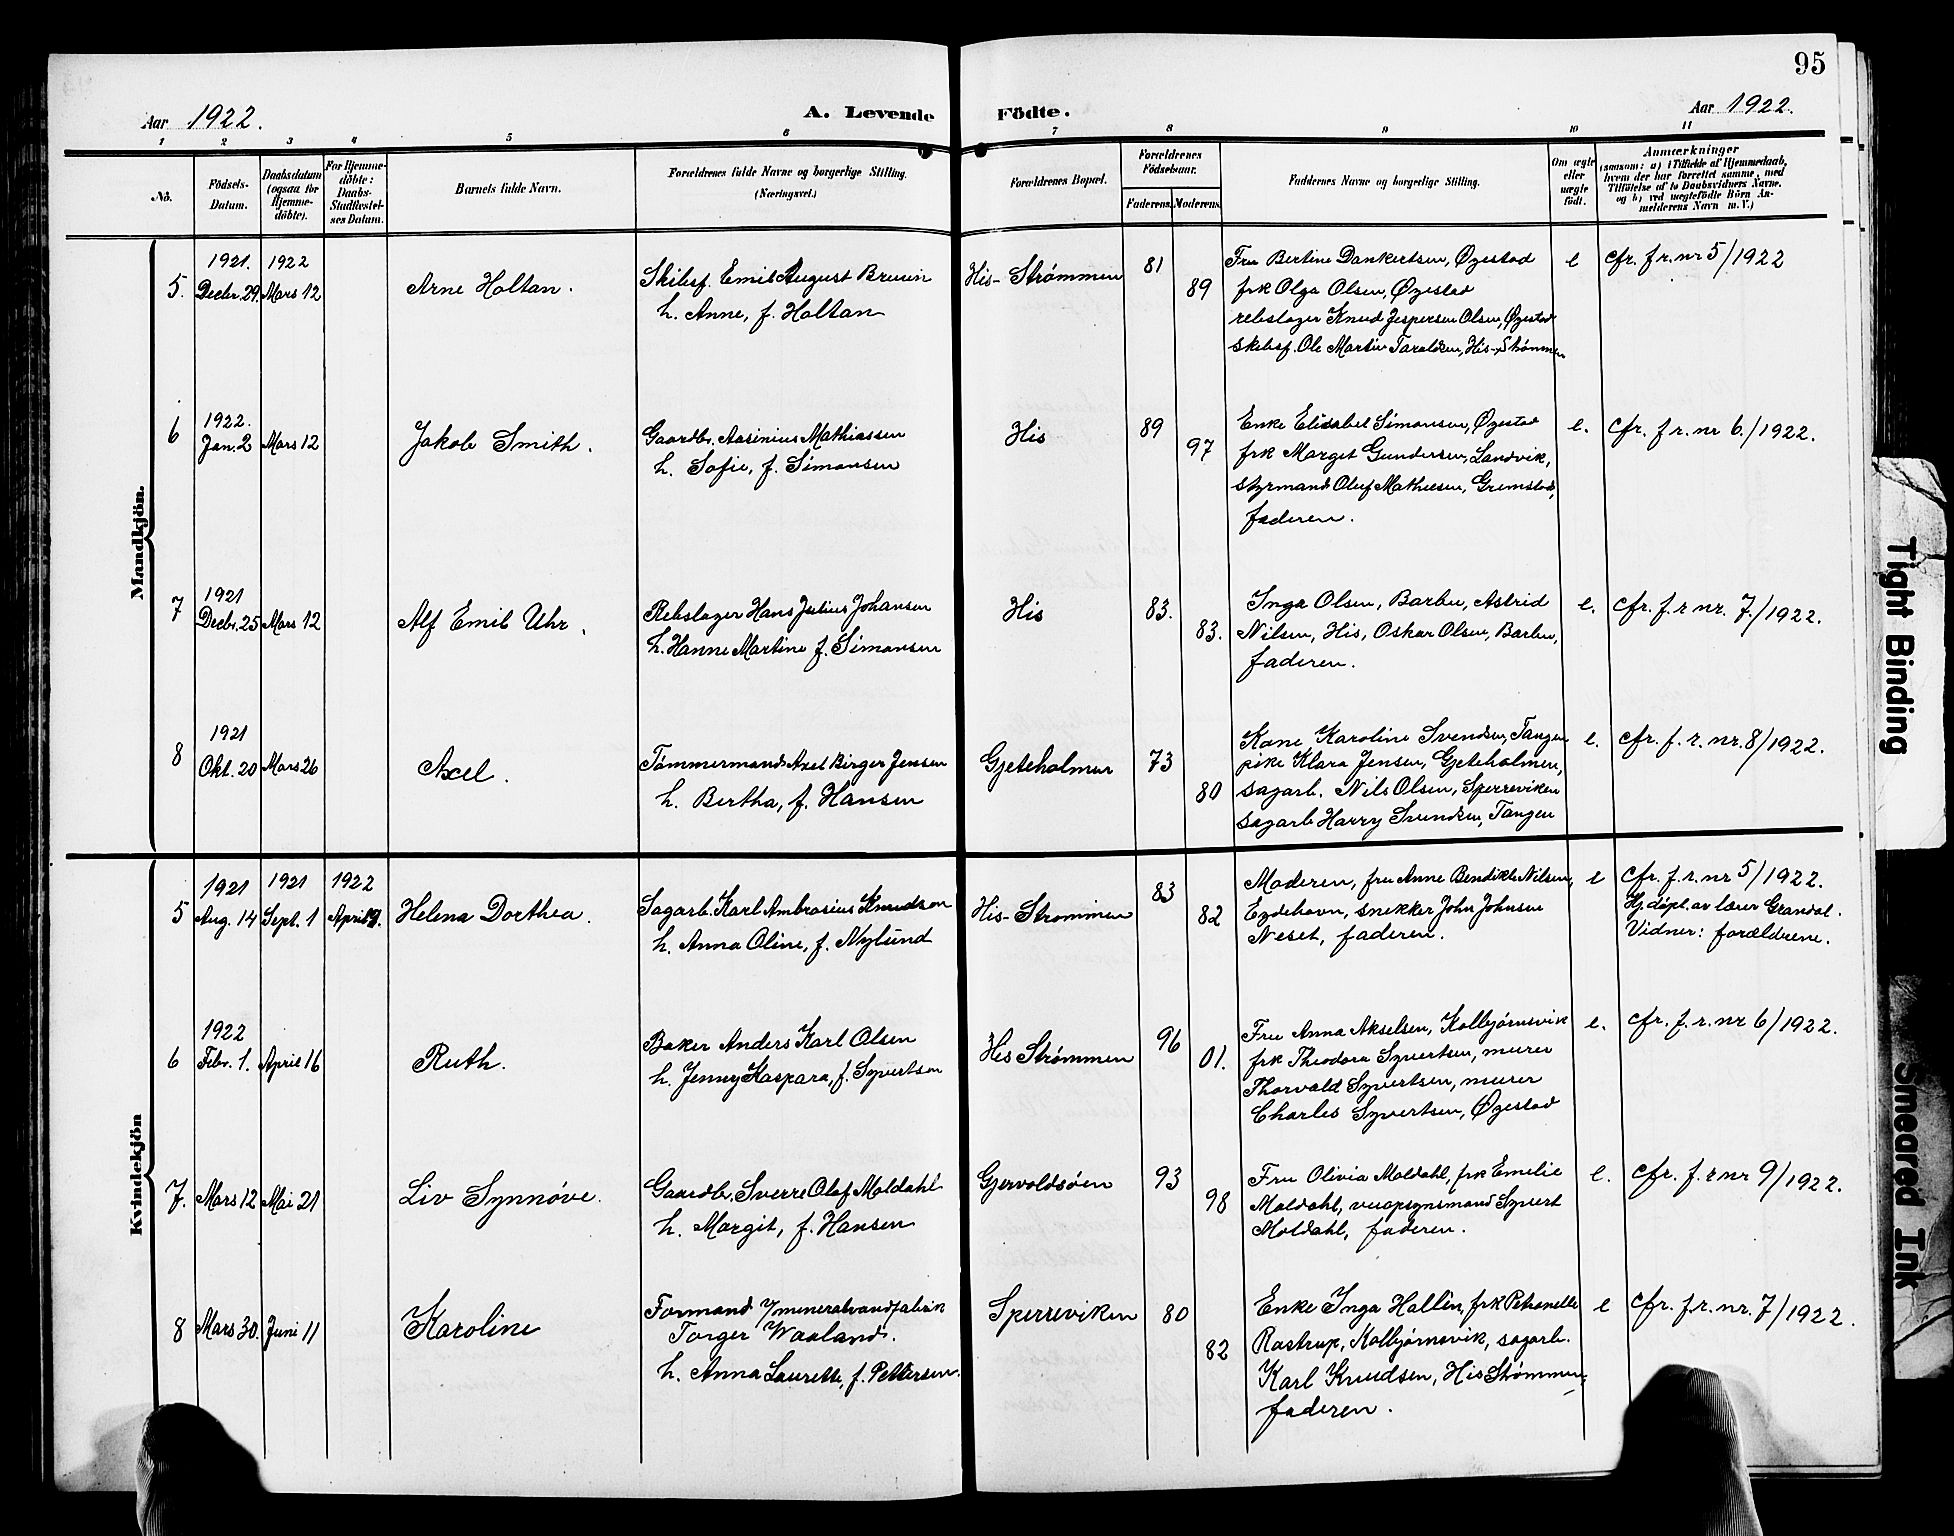 95
Aar 1922.
A. Levende Födte.
Aar 1922.
1 2 3 4 5 6 7 8 9 10 11
No.
Födsels-
Datum.
Daabsdatum
(ogsaa for
Hjemme-
döbte).
For Hjemme-
döbte:
Daabs-
Stadfæstel-
ses Datum.
Barnets fulde Navn.
Forældrenes fulde Navne og borgerlige Stilling.
(Næringsvei.)
Forældrenes Bopæl.
Forældrenes
Födselsaar.
Faderens. Moderens.
Faddernes Navne og borgerlige Stilling.
Om ægte
eller
uægte
födt.
Anmærkninger
(saasom: a) i Tilfælde af Hjemmedaab,
hvem der har forrettet samme, med
Tilföielse af to Daabsvidners Navne,
og b) ved uægtefödte Börn An-
melderens Navn m. V.)
Mandkjön.
5. 1921. Decbr. 29. 1922 Mars 12
Arne Holtan.
Skibsf. Emil August Bruun
h. Anne, f. Holtan
His-Strømmen
81
89
Fru Bertine Dankertsen, Øyestad
frk Olga Olsen, Øyestad
rebslager Knud Jespersen Olsen, Øyestad
skibsf. Ole Martin Taraldsen, His-Strømmen
e
cfr. f. r. nr 5/1922
6 1922. Jan. 2 Mars 12
Jakob Smith.
Gaardbr. Aasinius Mathiassen
h. Sofie, f. Simonsen
His
89
97
Enke Elisabet Simonsen, Øyestad
frk Margit Gundersen, Landvik,
styrmand Oluf Mathiesen, Grimstad,
faderen.
e.
cfr. f. r. nr 6./1922.
7 1921 Decbr. 25 Mars 12
Alf Emil Uhr.
Rebslager Hans Julius Johansen
h. Hanne Martine f. Simonsen
His
83.
83.
Inga Olsen, Barbu, Astrid
Nilsen, His, Oskar Olsen, Barbu,
faderen.
e.
cfr. f. r nr. 7./1922.
8 1921 Okt. 20 Mars 26
Axel.
Tømmermand Axel Birger Jensen
h. Bertha, f. Hansen
Gjeteholmen
73
80
Kone Karoline Svendsen, Tangen
pike Klara Jensen, Gjeteholmen,
sagarb. Nils Olsen, Sperreviken
sagarb Harry Svendsen, Tangen
e.
cfr. f. r. nr. 8/1922.
Kvindekjön
5 1921 Aug. 14 1921 Sept. 1 1922 April 9.
Helena Dorthea.
Sagarb. Karl Ambrosius Knudson
h. Anna Oline, f. Nylund
His-Strømmen
83
82
Moderen, fru Anne Bendikte Nilsen,
Eydehavn, snekker John Johnsen
Neset, faderen.
e
cfr. f. r. nr 5/1922.
Hj. døpt. av lærer Grandal.
Vidner: forældrene.
6 1922 Febr. 1. April 16
Ruth.
Baker Anders Karl Olsen
h. Jenny Kaspara, f. Syvertsen
His Strømmen
96
01.
Fru Anna Akselsen, Kolbjørnsvik
frk Theodora Syvertsen, murer
Thorvald Syvertsen, murer
Charles Syvertsen, Øyestad
e.
cfr. f. r. nr 6/1922.
7. Mars 12 Mai 21
Liv Synnøve.
Gaardbr. Sverre Olaf Moldahl
h. Margit, f. Hansen
Gjervoldsøen
93
98
Fru Olivia Moldahl, frk Emelie
Moldahl, veiopsynsmand Syvert
Moldahl, faderen.
e.
cfr. f. r nr 9/1922.
8 Mars 30. Juni 11
Karoline
Formand i/mineralvandfabrik
Torger Waaland.
h. Anna Laurette, f. Pettersen.
Sperreviken
80
82
Enke Inga Hallèn, frk Petronelle
Rostrup, Kolbjørnsvik, sagarb.
Karl Knudsen, His Strømmen,
faderen.
e
cfr. f. r. nr. 7/1922.
Tight Binding
Smeared Ink